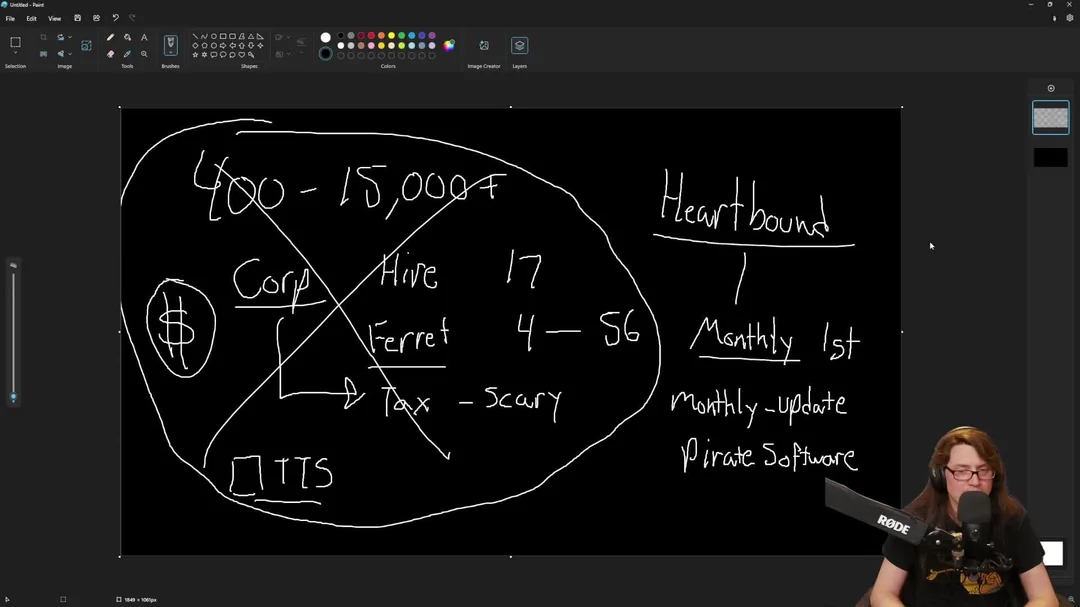 Untitled - Paint
File Edit View
Selection Image Tools Brushes Shapes Colors Image Creator Layers
400 - 15,000+
Corp Hive 17
$ Ferret 4 — 56
Tax - Scary
TTS
Heartbound
Monthly 1st
Monthly-update
Pirate Software
RØDE
1849 × 1061px